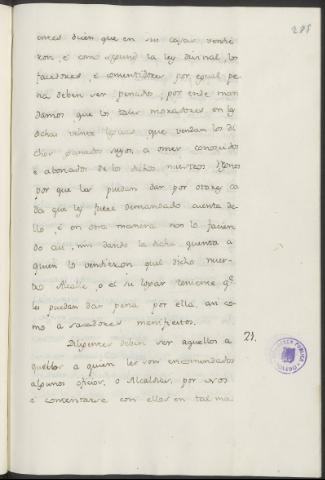 285
onces dicen que en su casas vendie
ron, é como segund la ley divinal, los
facedores, é consentidores por egual pe
na deben ser penados, por ende man
damos que los tales moradores en las
dichas veinte leguas que vendan los di
chos ganados suyos, a omes conocidos
é abonados de los dichos nuestros Regnos
por que les puedan dar por otores ca
da que les fuere demandado cuenta de
llo, é en otra manera non lo facien
do asi, nin dando la dicha cuenta a
quien lo vendieron quel dicho nues-
tro Alcalde, o el su lugar teniente qe
les puedan dar pena por ella, asi co
mo a sacadores manifiestos.
21.
Diligentes deben ser aquellos a
quellos a quien les son encomendados
algunos oficios, o Alcaldias, por Nos
é contentarse con ellos en tal ma